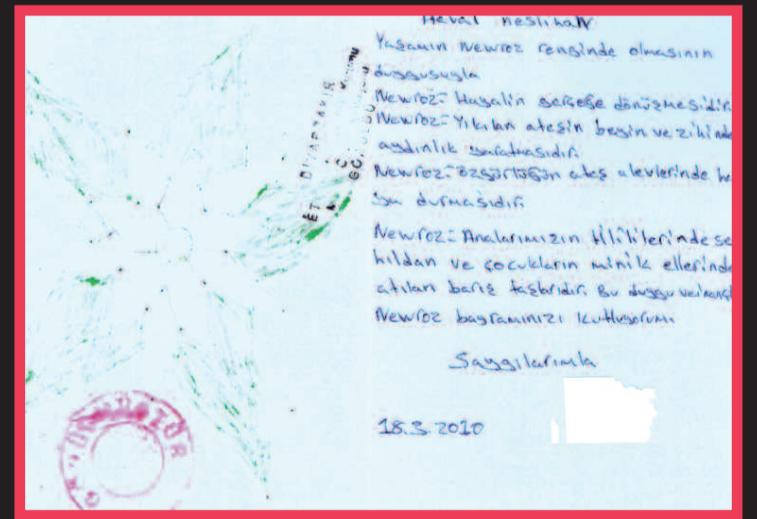 Heval Neslihan
Yaşamın Newroz renginde olmasının
duygusuyla
Newroz= Hayalin gerçeğe dönüşmesidir.
Newroz= Yıkılan ateşin beyin ve zihinde
aydınlık yaratmasıdır.
Newroz= özgürlüğün ateş alevlerinde
durmasıdır.
Newroz= Analarımızın tilililerinde se
hıldan ve çocukların minik ellerinde
atılan barış taşlarıdır. Bu duygu ve
Newroz bayramınızı kutluyorum.
Saygılarımla
18.3.2010